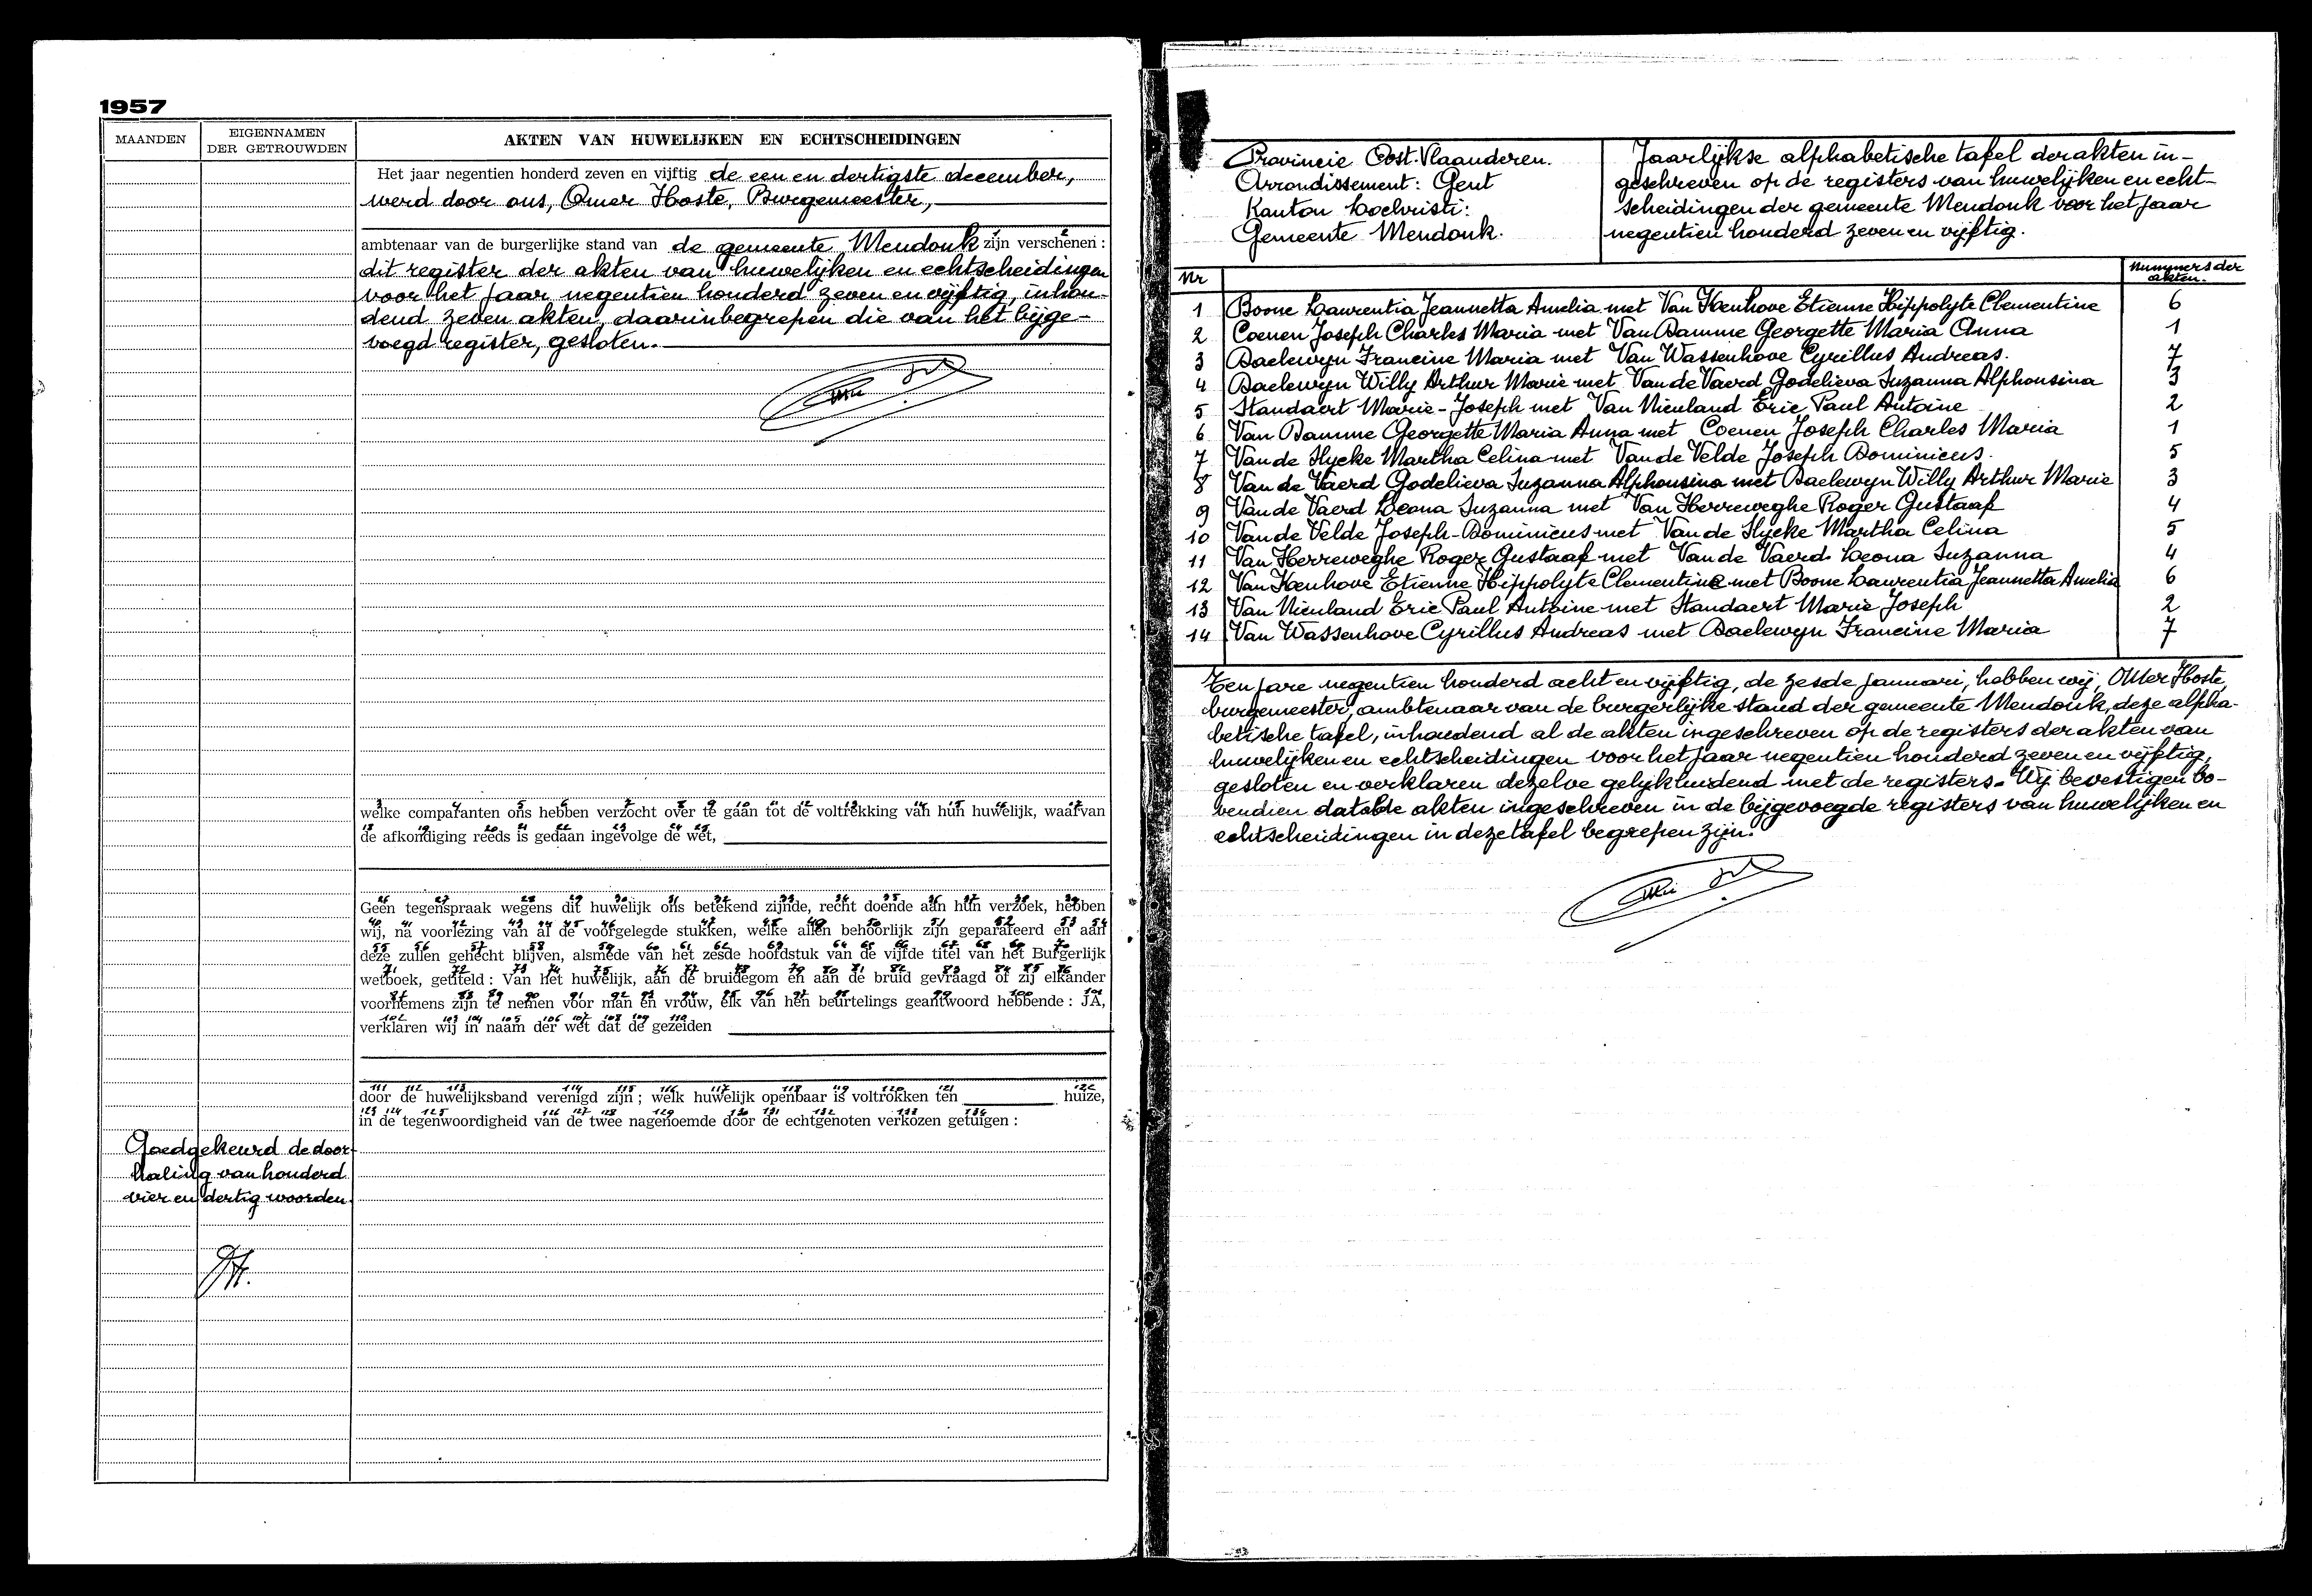 1957
MAANDEN
EIGENNAMEN
DER GETROUWDEN
AKTEN VAN HUWELIJKEN EN ECHTSCHEIDINGEN
Het jaar negentien honderd zeven en vijftig de een en dertigste december,
werd door ons, Omer Hoste, Burgemeester,
ambtenaar van de burgerlijke stand van de gemeente Mendonk zijn verschenen :
dit register der akten van huwelijken en echtscheidingen
voor het jaar negentien honderd zeven en vijftig, inhou-
dend zeven akten, daarinbegrepen die van het bijge-
voegd register, gesloten.
welke comparanten ons hebben verzocht over te gaan tot de voltrekking van hun huwelijk, waarvan
de afkondiging reeds is gedaan ingevolge de wet,
Geen tegenspraak wegens dit huwelijk ons betekend zijnde, recht doende aan hun verzoek, hebben
wij, na voorlezing van al de voorgelegde stukken, welke allen behoorlijk zijn geparafeerd en aan
deze zullen gehecht blijven, alsmede van het zesde hoofdstuk van de vijfde titel van het Burgerlijk
wetboek, getiteld : Van het huwelijk, aan de bruidegom en aan de bruid gevraagd of zij elkander
voornemens zijn te nemen voor man en vrouw, elk van hen beurtelings geantwoord hebbende : JA,
verklaren wij in naam der wet dat de gezeiden
door de huwelijksband verenigd zijn ; welk huwelijk openbaar is voltrokken ten huize,
in de tegenwoordigheid van de twee nagenoemde door de echtgenoten verkozen getuigen :
Goedgekeurd de door-
haling van honderd
vier en dertig woorden.
Provincie Oost-Vlaanderen.
Arrondissement: Gent
Kanton Lochristi:
Gemeente Mendonk.
Jaarlijkse alphabetische tafel der akten in-
geschreven op de registers van huwelijken en echt-
scheidingen der gemeente Mendonk voor het jaar
negentien honderd zeven en vijftig.
Nr
Nummers der
akten.
1 Boone Laurentia Jeannetta Amelia met Van Kenhove Etienne Hippolyte Clementine 6
2 Coenen Joseph Charles Maria met Van Damme Georgette Maria Anna 1
3 Daelewyn Francine Maria met Van Wassenhove Cyrillus Andreas. 7
4 Daelewyn Willy Arthur Marie met Van de Vaerd Godelieva Suzanna Alphonsina 3
5 Standaert Marie-Joseph met Van Nieuland Eric Paul Antoine 2
6 Van Damme Georgette Maria Anna met Coenen Joseph Charles Maria 1
7 Van de Slycke Martha Celina met Van de Velde Joseph Dominicus. 5
8 Van de Vaerd Godelieva Suzanna Alphonsina met Daelewyn Willy Arthur Marie 3
9 Van de Vaerd Leona Suzanna met Van Herreweghe Roger Gustaaf 4
10 Van de Velde Joseph-Dominicus met Van de Slycke Martha Celina 5
11 Van Herreweghe Roger Gustaaf met Van de Vaerd Leona Suzanna 4
12 Van Kenhove Etienne Hippolyte Clementine met Boone Laurentia Jeannetta Amelia 6
13 Van Nieuland Eric Paul Antoine met Standaert Marie Joseph 2
14 Van Wassenhove Cyrillus Andreas met Daelewyn Francine Maria 7
Ten jare negentien honderd acht en vijftig, de zesde januari, hebben wij, Omer Hoste,
burgemeester, ambtenaar van de burgerlijke stand der gemeente Mendonk, deze alpha-
betische tafel, inhoudend al de akten ingeschreven op de registers der akten van
huwelijken en echtscheidingen voor het jaar negentien honderd zeven en vijftig,
gesloten en verklaren dezelve gelijkluidend met de registers. Wij bevestigen bo-
vendien dat de akten ingeschreven in de bijgevoegde registers van huwelijken en
echtscheidingen in deze tafel begrepen zijn.